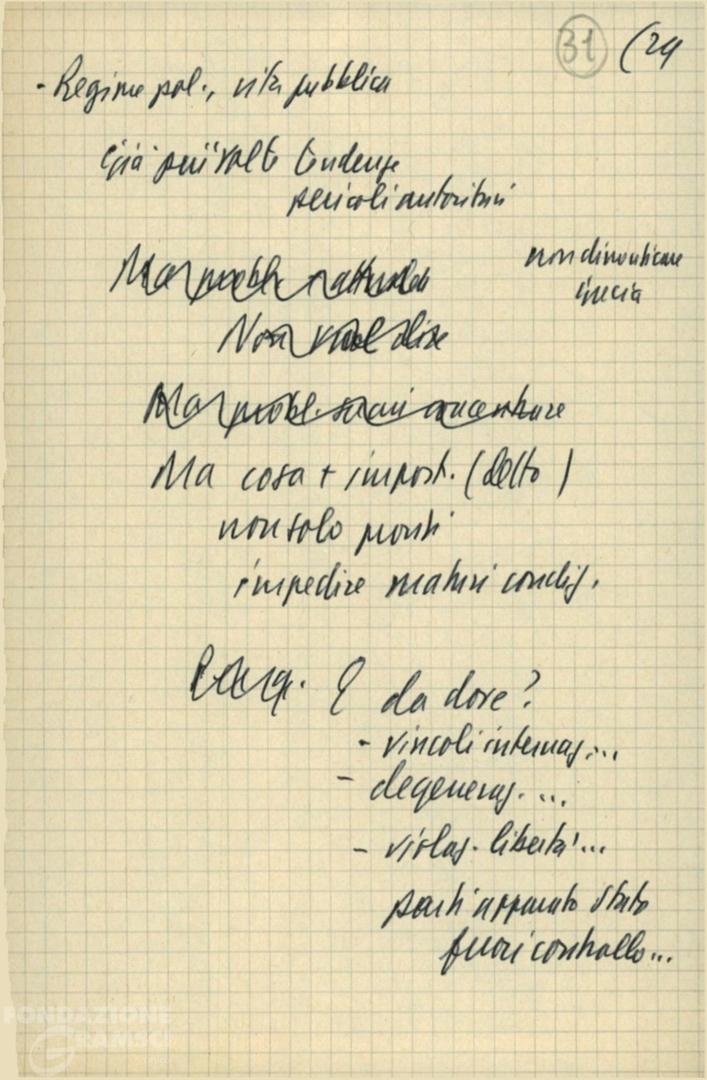 31 (24
- Regime pol., vita pubblica
Già più volte tendenze
pericoli autoritari
non dimenticare
Grecia
Ma probl.
Non vuol dire
Ma probl. accentuare
Ma cosa + import. (detto)
non solo pronti
impedire maturi condiz.
E da dove?
- vincoli internaz...
- degeneraz. ...
- violaz. libertà...
parti apparato Stato
fuori controllo...
FONDAZIONE
GRAMSCI